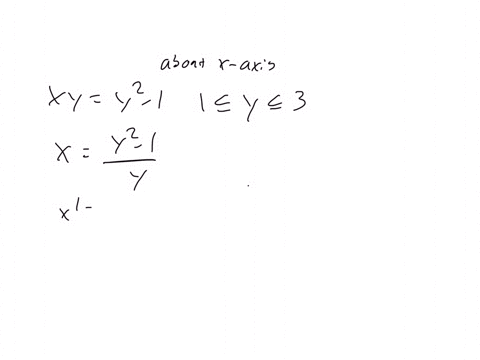 about x-axis
xy = y²-1   1 ≤ y ≤ 3
x = (y²-1)/y
x' =